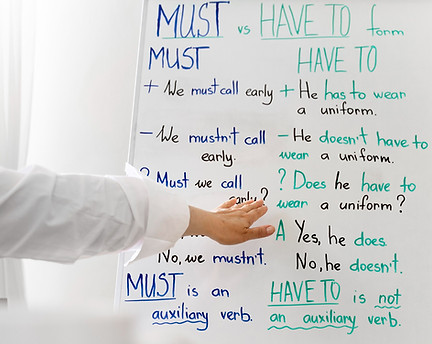 MUST vs HAVE TO form
MUST
+ We must call early
- We mustn't call
early.
? Must we call
early?
No, we mustn't.
MUST is an
auxiliary verb.
HAVE TO
+ He has to wear
a uniform.
- He doesn't have to
wear a uniform.
? Does he have to
wear a uniform?
A Yes, he does.
No, he doesn't.
HAVE TO is not
an auxiliary verb.